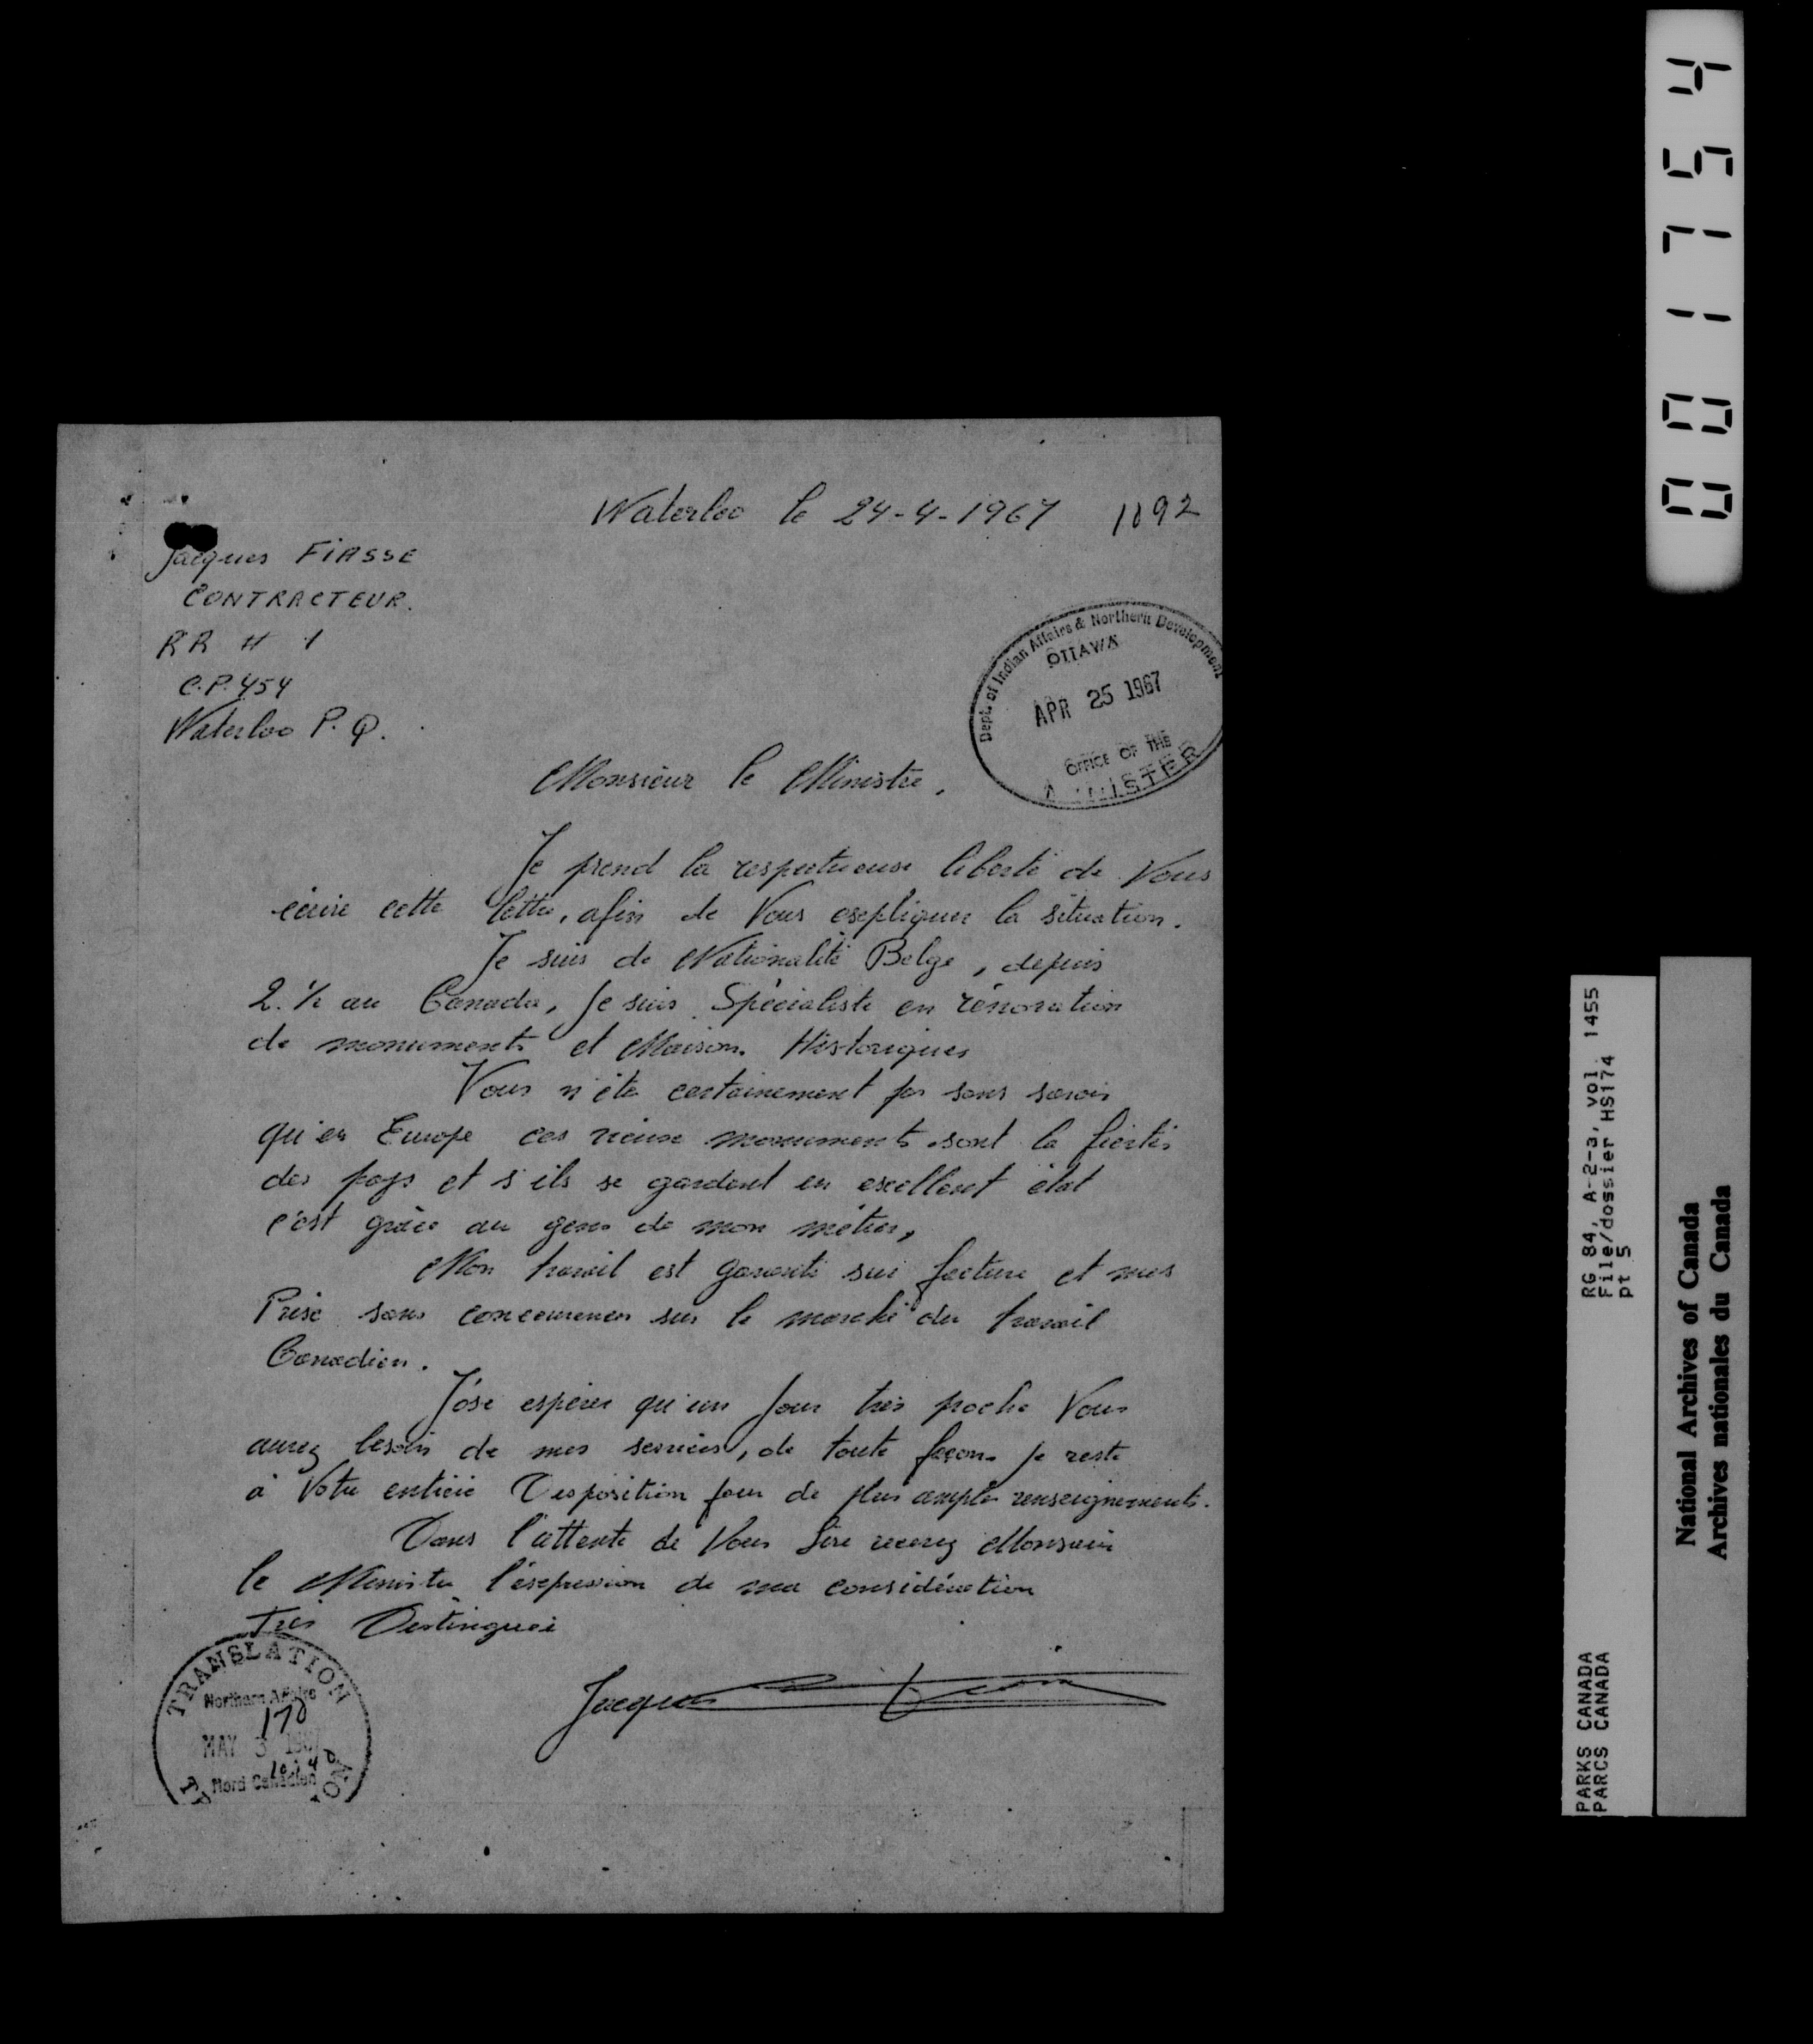 Waterloo le 24-4-1967 1092
Jacques FIASSE
CONTRACTEUR.
RR # 1
C.P. 454
Waterloo P.Q.
Dept. of Indian Affairs & Northern Development
OTTAWA
APR 25 1967
OFFICE OF THE
MINISTER
Monsieur le Ministre,
Je prend la respectueuse liberté de Vous
écrire cette lettre, afin de Vous expliquer la situation.
Je suis de Nationalité Belge, depuis
2.½ au Canada, Je suis Spécialiste en rénovation
de monuments et Maison Historiques
Vous n'ête certainement pas sans savoir
qu'en Europe ces vieux monuments sont la fiertés
des pays et s'ils se gardent en excellent état
c'est grâce au gens de mon métier,
Mon travail est garanti sur facture et mes
Prise sans concurrences sur le marché du travail
Canadien.
J'ose espérer qu'un Jour très proche Vous
aurez besoin de mes services, de toute façons je reste
à Votre entière Disposition pour de plus amples renseignements.
Dans l'attente de Vous Lire recevez Monsieur
le Ministre l'expression de ma considération
Très Distinguée
Jacques
TRANSLATION
Northern Affairs
170
MAY 3 1967
Nord Canadien
0001754
RG 84, A-2-a, vol 1455
File/dossier HS174
pt 5
PARKS CANADA
PARCS CANADA
National Archives of Canada
Archives nationales du Canada